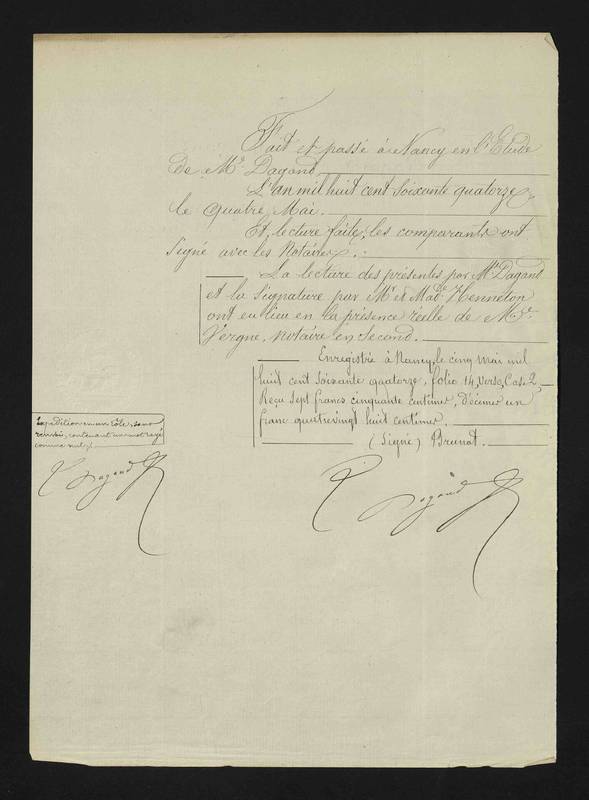 Fait et passé à Nancy en l'Etude
de Me. Dagand
L'an mil huit cent soixante quatorze
le quatre Mai.
Et, lecture faite, les comparants ont
signé avec les Notaires.
La lecture des présentes par Me Dagand
et la signature par Mr et Made Henneton
ont eu lieu en la présence réelle de Me
Vergne, notaire en second.
Enregistré à Nancy, le cinq mai mil
huit cent soixante quatorze, folio 14, verso, Case 2,
Reçu sept francs cinquante centimes, décimes un
franc quatrevingt huit centimes.
(Signé) Brunot.
Expédition en un rôle, sans
renvoi, contenant un mot rayé
comme nul.
Dagand
Dagand